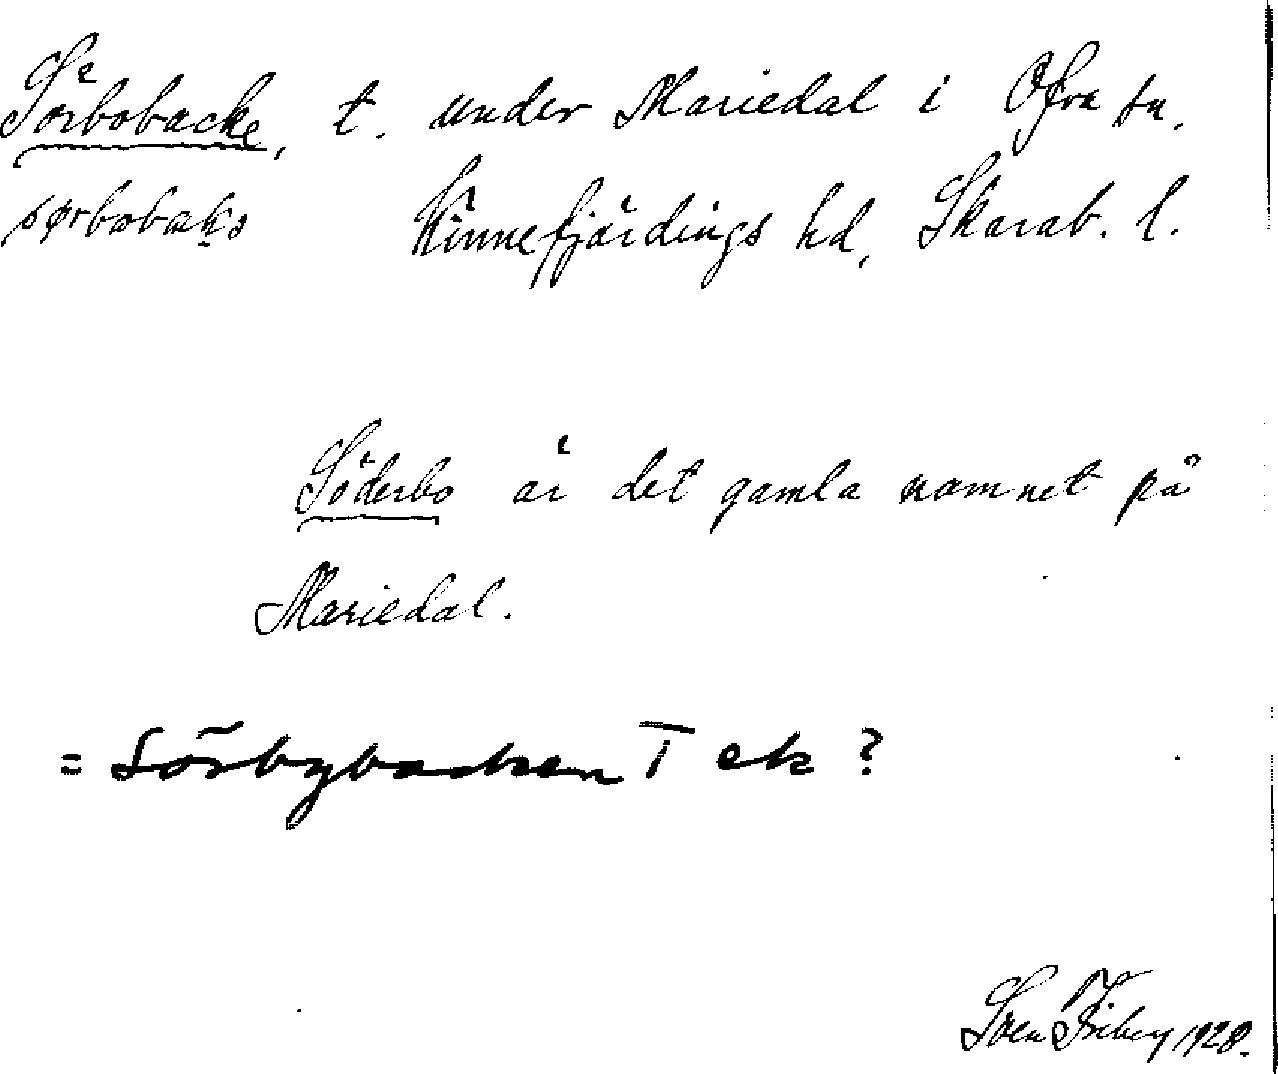 Sörbobacke, t. under Mariedal i Ofva sn.
sørbobaks Kinnefjärdings hd, Skarab. l.
Söderbo är det gamla namnet på
Mariedal.
= Sörbybacken T ek ?
Sven Friberg 1928.